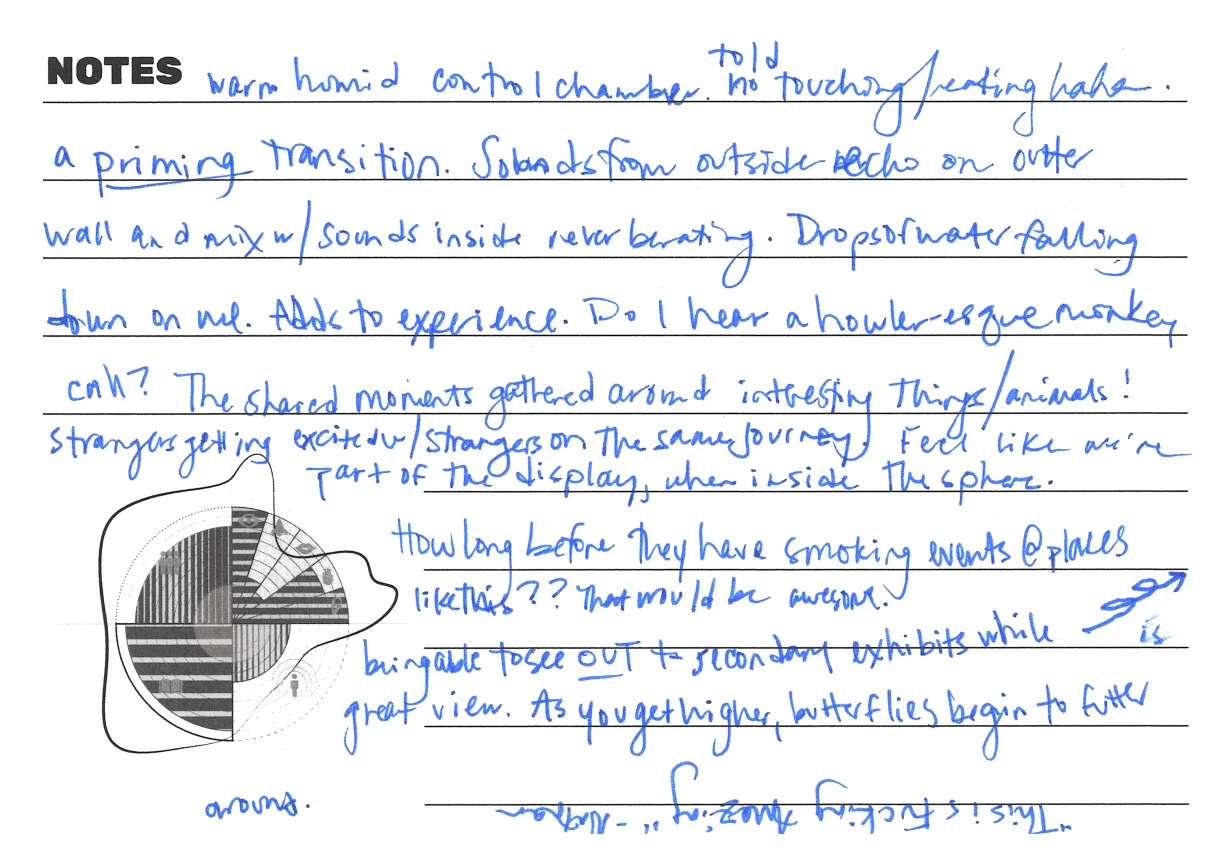 NOTES warm humid control chamber. told no touching/eating haha.
a priming transition. Sounds from outside echo on outter
wall and mix w/ sounds inside reverberating. Drops of water falling
down on me. Adds to experience. Do I hear a howler-esque monkey
call? The shared moments gathered around interesting things/animals!
Strangers getting excited w/ strangers on the same journey. Feel like we're
part of the display, when inside the sphere.
How long before they have smoking events @ places
like this?? That would be awesome.
being able to see OUT to secondary exhibits while is
great view. As you get higher, butterflies begin to futter
around.
"This is fucking Amazing" - Nathan